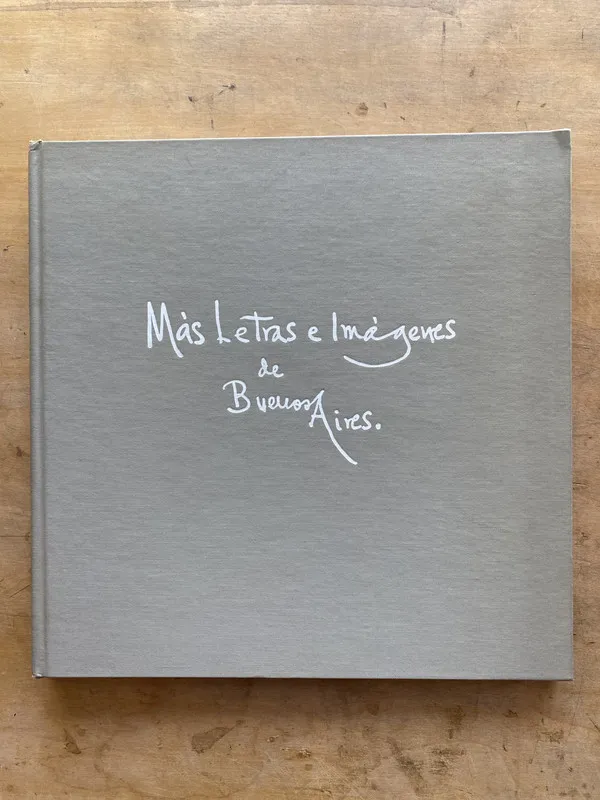 Más Letras e Imágenes
de
Buenos Aires.